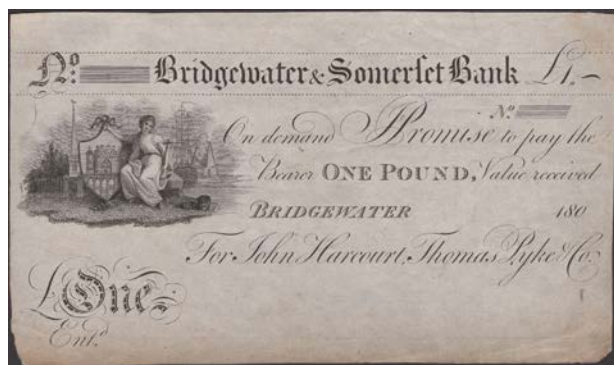 No. Bridgewater & Somerſet Bank £1.–
No.
On demand I Promise to pay the
Bearer ONE POUND, Value received
BRIDGEWATER 180
For John Harcourt, Thomas Pyke & Co.
£One
Entd.